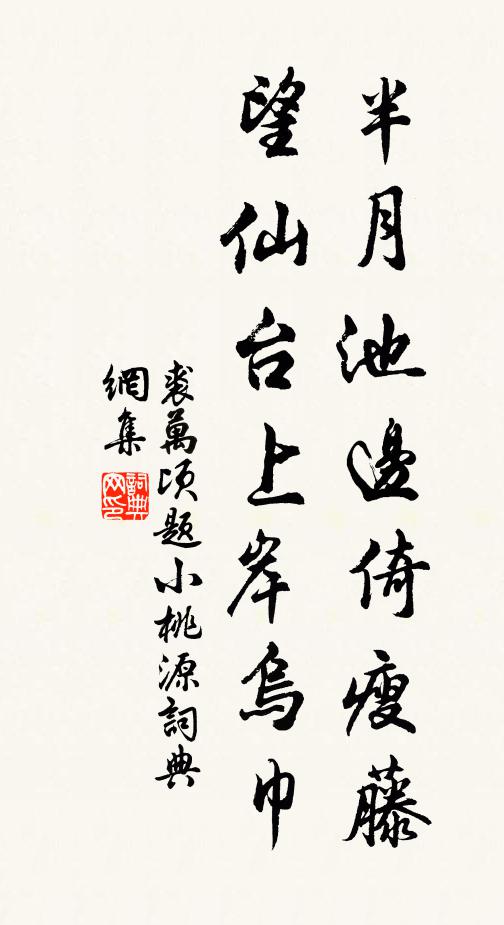 半月池邊倚瘦藤
望仙台上岸烏巾
裘萬頃題小桃源詞典
網集
詞典網印